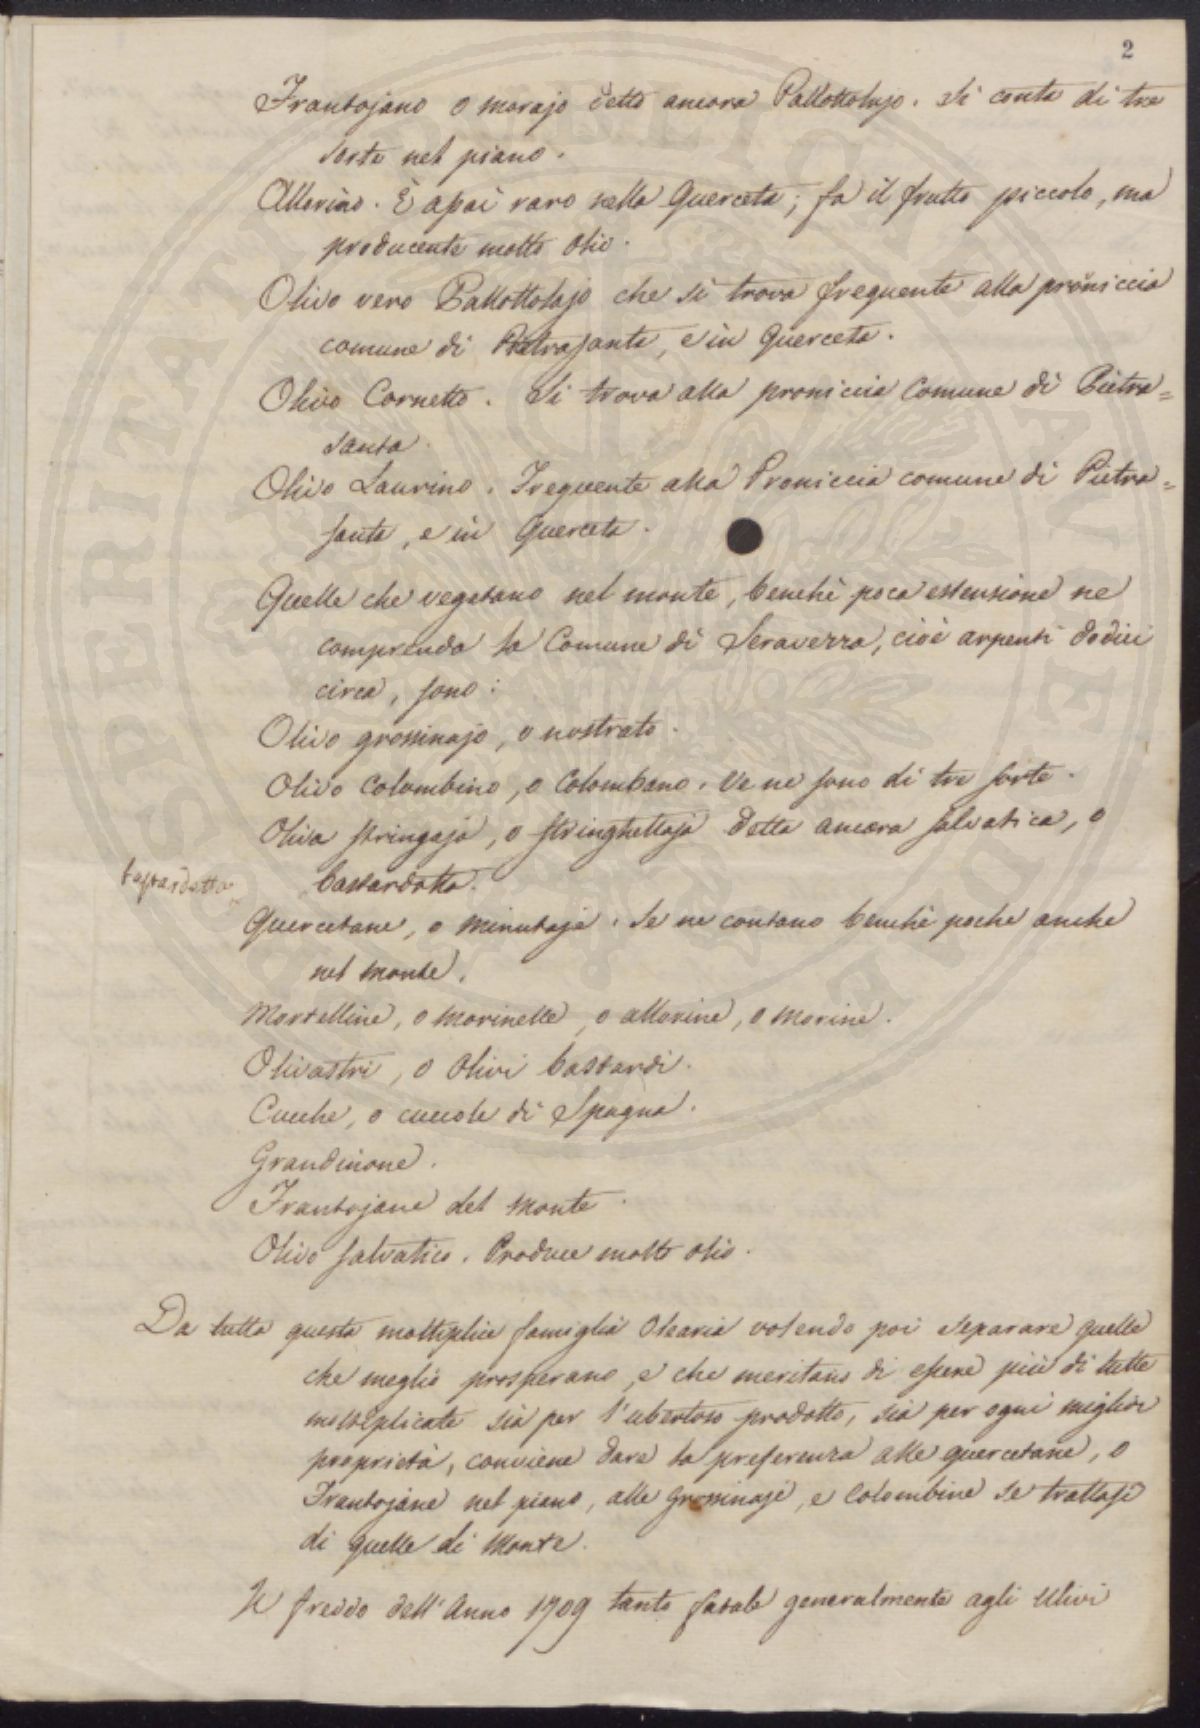 2
Frantojano o morajo detto ancora Pallottolajo. Si conta di tre
sorte nel piano.
Allorino. È assai raro nella Querceta; fa il frutto piccolo, ma
producente molto olio.
Olivo vero Pallottolajo che si trova frequente alla proniccia
comune di Pietrasanta, e in Querceta.
Olivo Cornetto. Si trova alla proniccia Comune di Pietra=
santa.
Olivo Laurino. Frequente alla Proniccia comune di Pietra=
santa, e in Querceta.
Quelle che vegetano nel monte, benchè poca estensione ne
comprenda la Comune di Seravezza, cioè arpenti dodici
circa, sono:
Olivo grossinajo, o nostrato.
Olivo Colombino, o Colombano. Ve ne sono di tre sorte.
Oliva stringaja, o stringhettaja detta ancora salvatica, o
bastardotta.
bastardotta
Quercetane, o minutaje. Se ne contano benchè poche anche
nel monte.
Mortelline, o morinelle, o allorine, o morine.
Olivastri, o Olivi bastardi.
Cucche, o cuccole di Spagna.
Grandinone.
Frantojane del Monte.
Olivo salvatico. Produce molto olio.
Da tutta questa moltiplice famiglia Olearia volendo poi separare quelle
che meglio prosperano, e che meritano di essere più di tutte
moltiplicate sia per l'ubertoso prodotto, sia per ogni miglior
proprietà, conviene dare la preferenza alle quercetane, o
Frantojane nel piano, alle grossinaje, e Colombine se trattasi
di quelle di Monte.
Il freddo dell'Anno 1709 tanto fatale generalmente agli Ulivi
SPERITATI PUBLICAE AVGENDAE